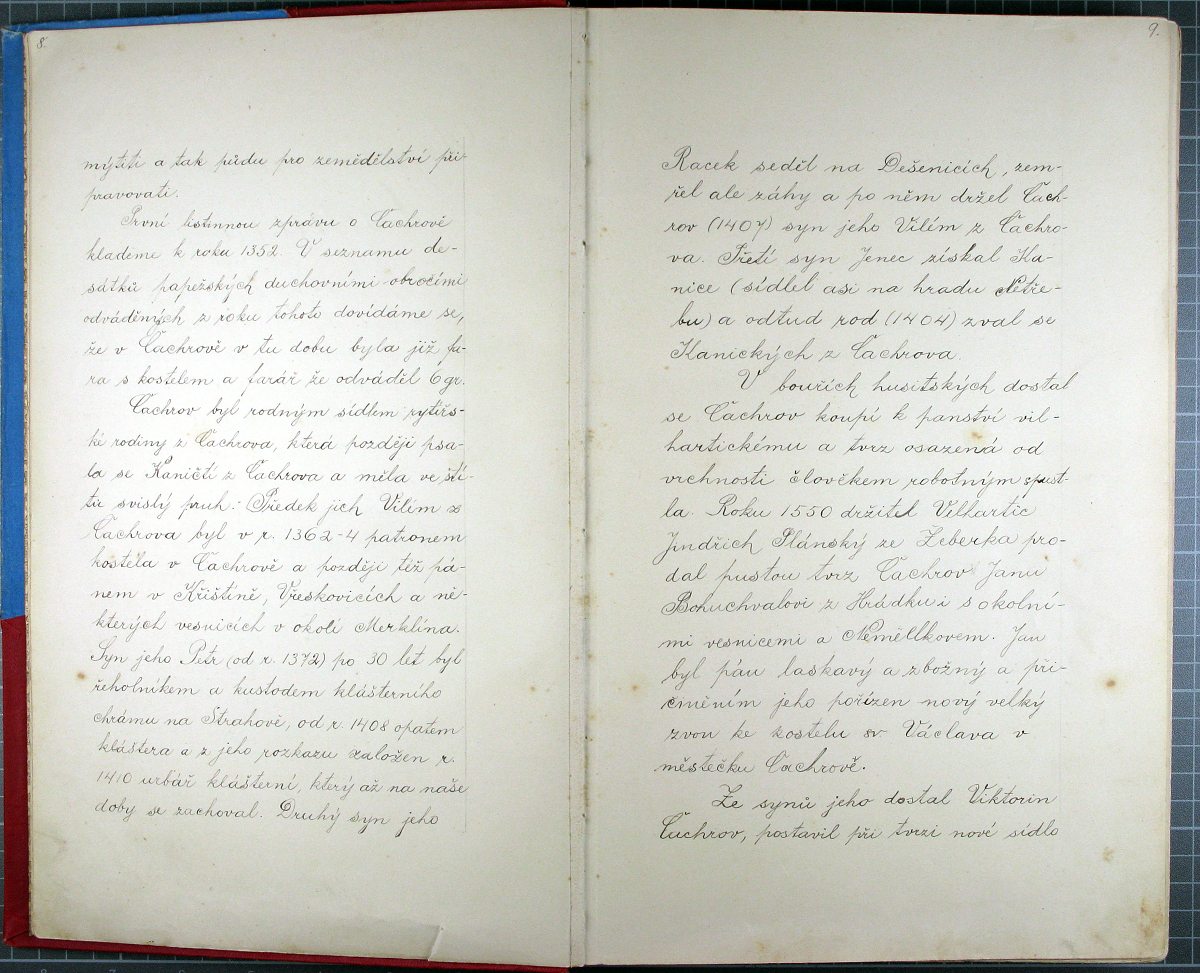 8.
mýtiti a tak půdu pro zemědělství při-
pravovati.
První listinnou zprávu o Čachrově
klademe k roku 1352. V seznamu de-
sátků papežských duchovními obročími
odváděných z roku tohoto dovídáme se,
že v Čachrově v tu dobu byla již fa-
ra s kostelem a farář že odváděl 6 gr.
Čachrov byl rodným sídlem rytířs-
ké rodiny z Čachrova, která později psa-
la se Kaničtí z Čachrova a měla ve ští-
tu svislý pruh. Předek jich Vilím z
Čachrova byl v r. 1362-4 patronem
kostela v Čachrově a později též pá-
nem v Křištíně, Vřeskovicích a ně-
kterých vesnicích v okolí Merklína.
Syn jeho Petr (od r. 1372) po 30 let byl
řeholníkem a kustodem klášterního
chrámu na Strahově, od r. 1408 opatem
kláštera a z jeho rozkazu založen r.
1410 urbář klášterní, který až na naše
doby se zachoval. Druhý syn jeho
9.
Racek seděl na Dešenicích, zem-
řel ale záhy a po něm držel Čach-
rov (1407) syn jeho Vilém z Čachro-
va. Třetí syn Jenec získal Ka-
nice (sídlel asi na hradu Netře-
bu) a odtud rod (1404) zval se
Kanických z Čachrova.
V bouřích husitských dostal
se Čachrov koupí k panství vil-
hartickému a tvrz osazená od
vrchnosti člověkem robotným spust-
la. Roku 1550 držitel Velhartic
Jindřich Plánský ze Žeberka pro-
dal pustou tvrz Čachrov Janu
Bohuchvalovi z Hrádku i s okolní-
mi vesnicemi a Nemëllkovem. Jan
byl pán laskavý a zbožný a při-
číněním jeho pořízen nový velký
zvon ke kostelu sv. Václava v
městečku Čachrově.
Ze synů jeho dostal Viktorin
Čachrov, postavil při tvrzi nové sídlo